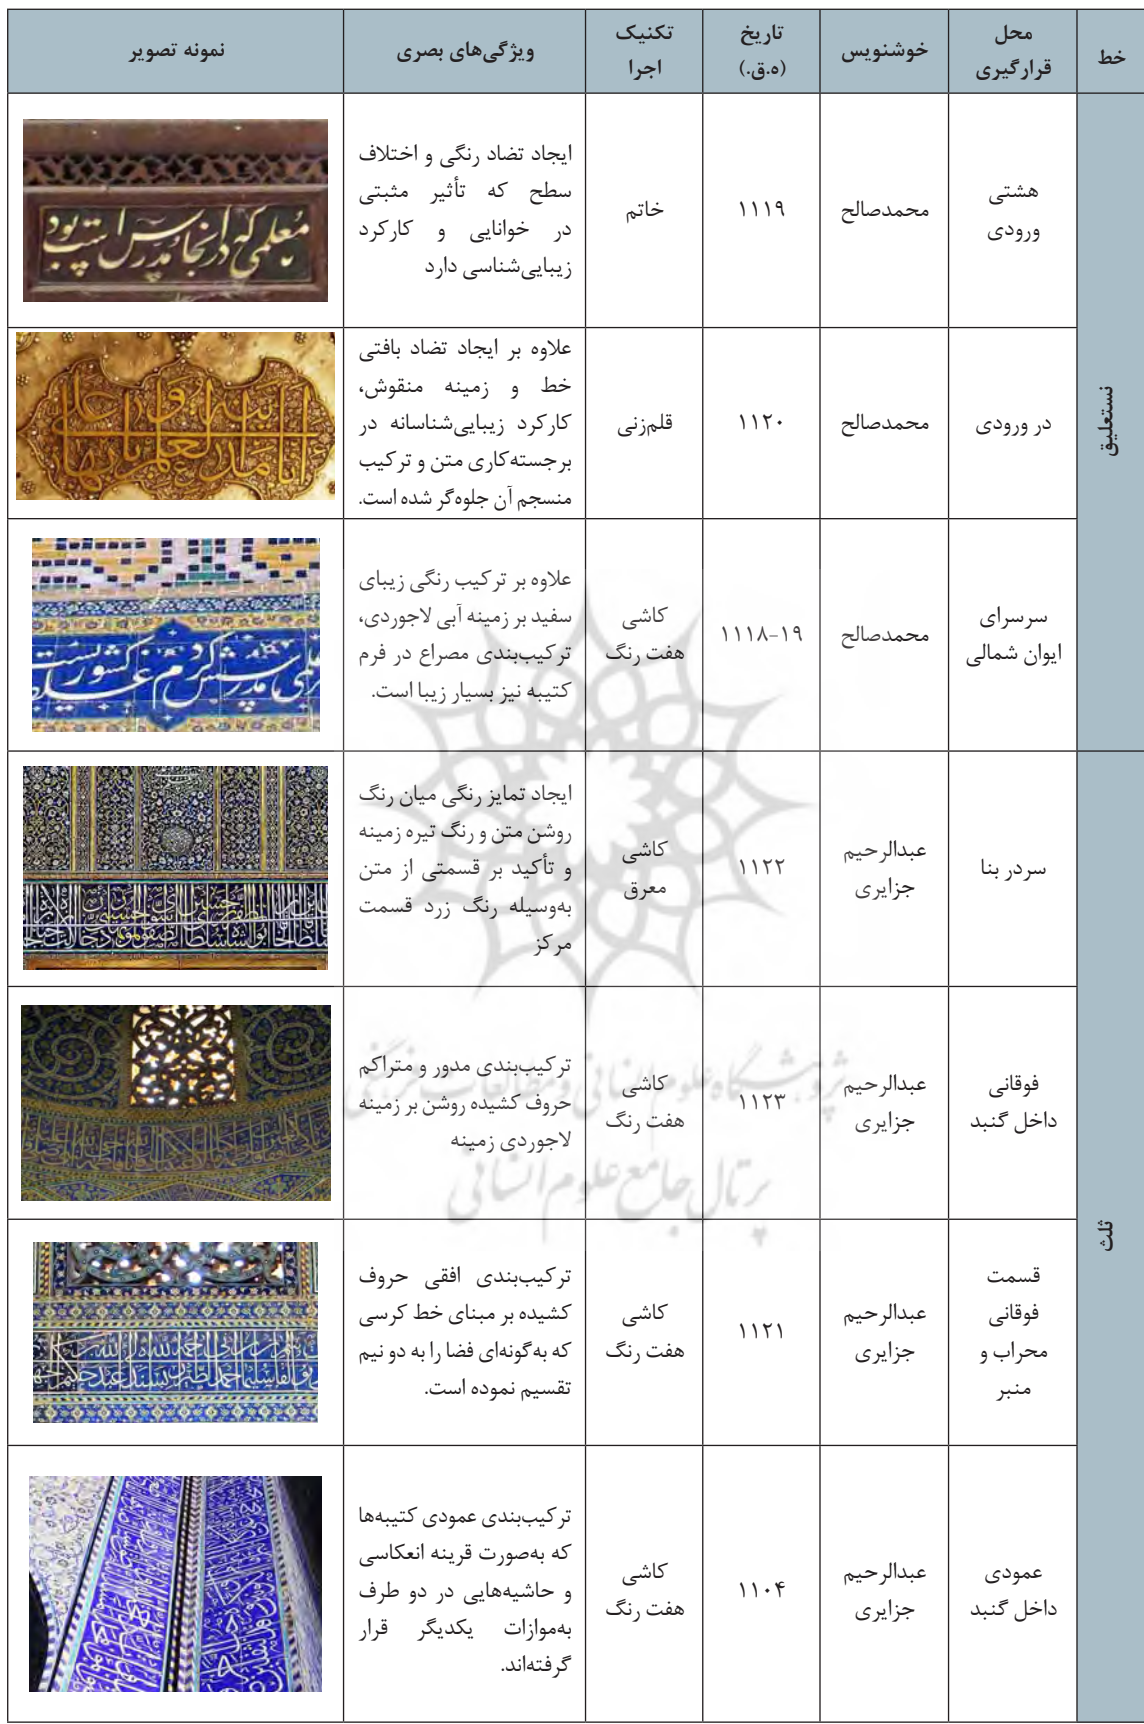 خط
محل
قرارگیری
خوشنویس
تاریخ
(ه.ق.)
تکنیک
اجرا
ویژگی‌های بصری
نمونه تصویر
نستعلیق
هشتی
ورودی
محمدصالح
۱۱۱۹
خاتم
ایجاد تضاد رنگی و اختلاف
سطح که تأثیر مثبتی
در خوانایی و کارکرد
زیبایی‌شناسی دارد
در ورودی
محمدصالح
۱۱۲۰
قلم‌زنی
علاوه بر ایجاد تضاد بافتی
خط و زمینه منقوش،
کارکرد زیبایی‌شناسانه در
برجسته‌کاری متن و ترکیب
منسجم آن جلوه‌گر شده است.
سرسرای
ایوان شمالی
محمدصالح
۱۱۱۸-۱۹
کاشی
هفت رنگ
علاوه بر ترکیب رنگی زیبای
سفید بر زمینه آبی لاجوردی،
ترکیب‌بندی مصراع در فرم
کتیبه نیز بسیار زیبا است.
ثلث
سردر بنا
عبدالرحیم
جزایری
۱۱۲۲
کاشی
معرق
ایجاد تمایز رنگی میان رنگ
روشن متن و رنگ تیره زمینه
و تأکید بر قسمتی از متن
به‌وسیله رنگ زرد قسمت
مرکز
فوقانی
داخل گنبد
عبدالرحیم
جزایری
۱۱۲۳
کاشی
هفت رنگ
ترکیب‌بندی مدور و متراکم
حروف کشیده روشن بر زمینه
لاجوردی زمینه
قسمت
فوقانی
محراب و
منبر
عبدالرحیم
جزایری
۱۱۲۱
کاشی
هفت رنگ
ترکیب‌بندی افقی حروف
کشیده بر مبنای خط کرسی
که به‌گونه‌ای فضا را به دو نیم
تقسیم نموده است.
عمودی
داخل گنبد
عبدالرحیم
جزایری
۱۱۰۴
کاشی
هفت رنگ
ترکیب‌بندی عمودی کتیبه‌ها
که به‌صورت قرینه انعکاسی
و حاشیه‌هایی در دو طرف
به‌موازات یکدیگر قرار
گرفته‌اند.
پژوهشگاه علوم انسانی و مطالعات فرهنگی
پرتال جامع علوم انسانی